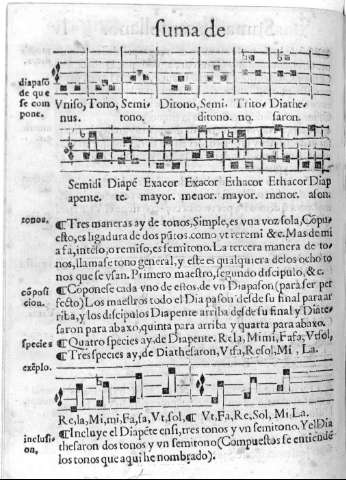 suma de
diapasõ
de que
se com
pone.
Vniso, Tono, Semi- Ditono, Semi- Trito- Diathe-
nus. tono. ditono. no. saron.
Semidi Diapẽ Exacor Exacor Ethacor Ethacor Diap
apente. te. mayor. menor. mayor. menor. ason.
tonos.
¶Tres maneras ay de tonos, Simple, es vna voz sola, Cõpu-
esto, es ligadura de dos pũtos. como vt re mi &c. Mas de mi
a fa, intẽso, o remiso, es semitono. La tercera manera de to-
nos, llamase tono general, y este es qualquiera delos ocho to
nos que se vsan. Primero maestro, segundo discipulo, &c.
cõposi
cion.
¶Cõponese cada vno de estos, de vn Diapason (para ser per
fecto) Los maestros todo el Diapasou desde su final para ar
riba, y los discipulos Diapente arriba desde su final y Diate-
saron para abaxo, quinta para arriba y quarta para abaxo.
species
¶Quatro species ay, de Diapente. Re la, Mi mi, Fa fa, Vt sol,
¶Tres species ay, de Diathesaron, Vt fa, Re sol, Mi, La.
exẽplo.
Re, la, Mi, mi, Fa, fa, Vt, sol, ¶ Vt, Fa, Re, Sol, Mi, La.
inclusi-
on,
¶Incluye el Diapẽte en si, tres tonos y vn semitono. Y el Dia
thesaron dos tonos y vn semitono (Compuestos se entiendẽ
los tonos que aqui he nombrado).